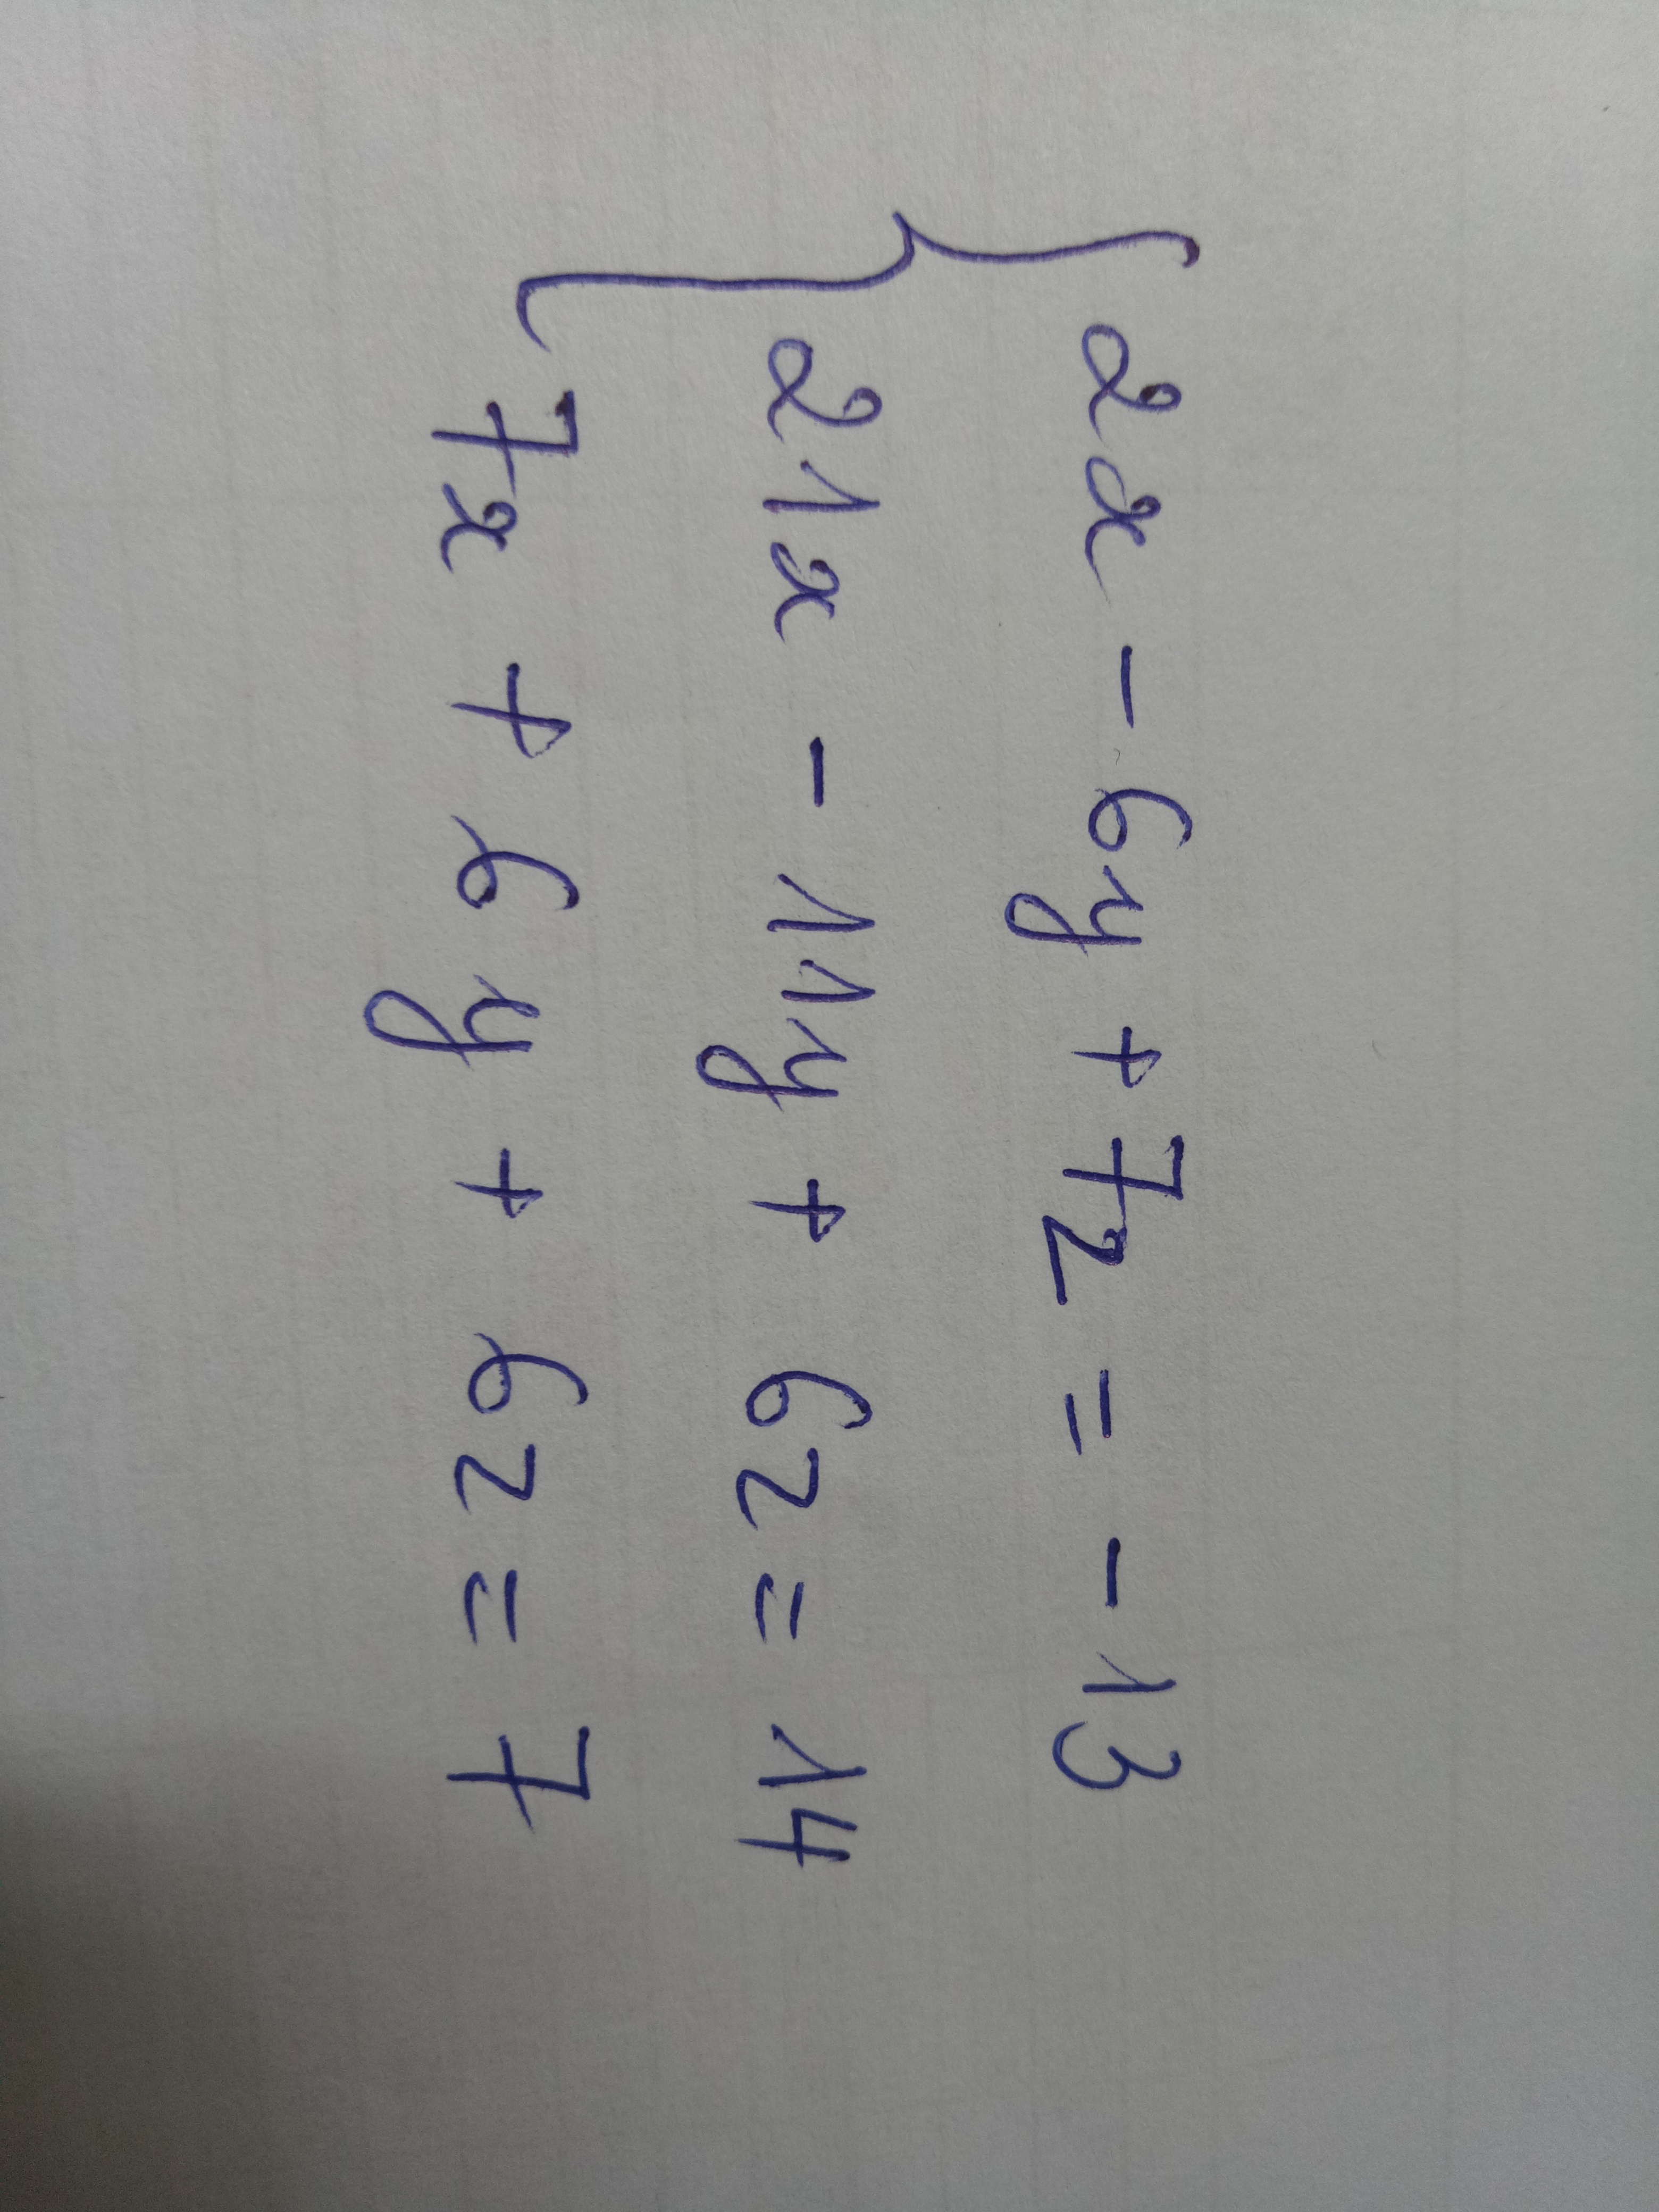 2x - 6y + 7z = -13
21x - 11y + 6z = 14
7x + 6y + 6z = 7